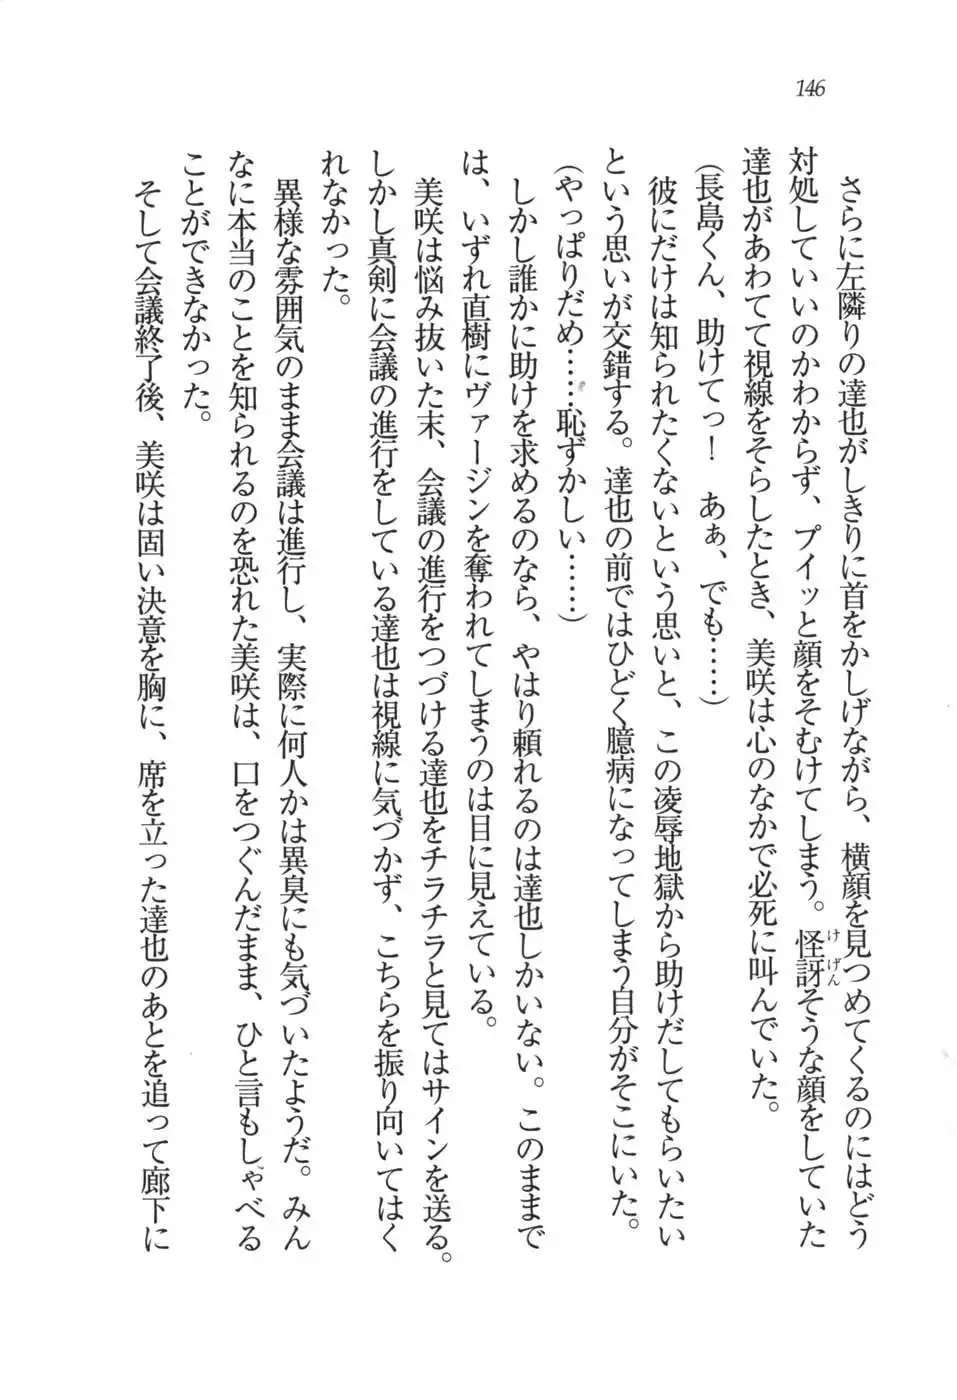 146
さらに左隣りの達也がしきりに首をかしげながら、横顔を見つめてくるのにはどう
対処していいのかわからず、プイッと顔をそむけてしまう。怪訝そうな顔をしていた
けげん
達也があわてて視線をそらしたとき、美咲は心のなかで必死に叫んでいた。
(長島くん、助けてっ! あぁ、でも……)
彼にだけは知られたくないという思いと、この凌辱地獄から助けだしてもらいたい
という思いが交錯する。達也の前ではひどく臆病になってしまう自分がそこにいた。
(やっぱりだめ……恥ずかしい……)
しかし誰かに助けを求めるのなら、やはり頼れるのは達也しかいない。このままで
は、いずれ直樹にヴァージンを奪われてしまうのは目に見えている。
美咲は悩み抜いた末、会議の進行をつづける達也をチラチラと見てはサインを送る。
しかし真剣に会議の進行をしている達也は視線に気づかず、こちらを振り向いてはく
れなかった。
異様な雰囲気のまま会議は進行し、実際に何人かは異臭にも気づいたようだ。みん
なに本当のことを知られるのを恐れた美咲は、口をつぐんだまま、ひと言もしゃべる
ことができなかった。
そして会議終了後、美咲は固い決意を胸に、席を立った達也のあとを追って廊下に